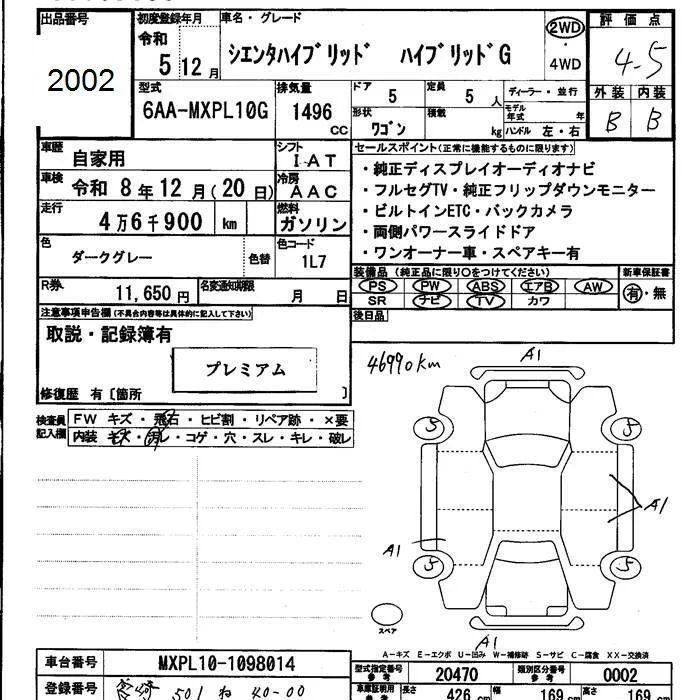 出品番号
2002
初度登録年月
令和
5 12月
車名・グレード
シエンタハイブリッド ハイブリッドG
2WD
・
4WD
評価点
4.5
外装 内装
B B
型式
6AA-MXPL10G
排気量
1496
CC
ドア 5
定員 5 人
ディーラー・並行
形状 ワゴン
積載 kg
モデル年式 年
ハンドル 左・右
車歴 自家用
シフト I AT
車検 令和 8年12月(20日)
冷房 AAC
走行 4万6千900 km
燃料 ガソリン
色 ダークグレー 色替
色コード 1L7
R券 11,650円
名変通知期限 月 日
セールスポイント(正常に機能するものに限ります)
・純正ディスプレイオーディオナビ
・フルセグTV・純正フリップダウンモニター
・ビルトインETC・バックカメラ
・両側パワースライドドア
・ワンオーナー車・スペアキー有
装備品 (純正品に限り○をつけてください)
新車保証書
PS PW ABS エアB AW
有・無
SR ナビ TV カワ
後日品
注意事項申告欄(不具合内容等は具体的に記入して下さい)
取説・記録簿有
プレミアム
修復歴 有〔箇所 〕
検査員記入欄
FW キズ・飛石・ヒビ割・リペア跡・×要
内装 キズ・汚レ・コゲ・穴・スレ・キレ・破レ
46990km
A1
5 5
A1
A1
5 5
スペア
A1
A-キズ E-エクボ U-凹み W-補修跡 S-サビ C-腐食 XX-交換済
車台番号 MXPL10-1098014
型式指定番号 参考 20470
類別区分番号 参考 0002
登録番号
501 ね 40-00
車庫証明用 参考
長さ 426 cm
幅 169 cm
高さ 169 cm